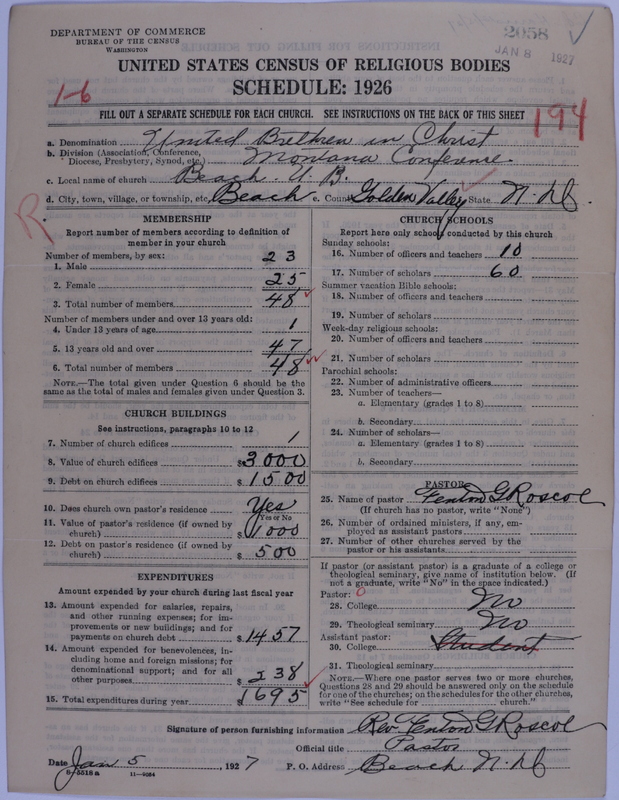 DEPARTMENT OF COMMERCE
BUREAU OF THE CENSUS
WASHINGTON
2058
JAN 8 1927
UNITED STATES CENSUS OF RELIGIOUS BODIES
SCHEDULE: 1926
1-6
FILL OUT A SEPARATE SCHEDULE FOR EACH CHURCH. SEE INSTRUCTIONS ON THE BACK OF THIS SHEET
194
a. Denomination United Brethren in Christ
b. Division (Association, Conference, Diocese, Presbytery, Synod, etc.) Montana Conference
c. Local name of church Beach U. B.
d. City, town, village, or township, etc. Beach e. County Golden Valley State N. D.
R
MEMBERSHIP
Report number of members according to definition of
member in your church
Number of members, by sex:
1. Male 23
2. Female 25
3. Total number of members 48
Number of members under and over 13 years old:
4. Under 13 years of age 1
5. 13 years old and over 47
6. Total number of members 48
NOTE.—The total given under Question 6 should be the
same as the total of males and females given under Question 3.
CHURCH BUILDINGS
See instructions, paragraphs 10 to 12
7. Number of church edifices 1
8. Value of church edifices $3000
9. Debt on church edifices $1500
10. Does church own pastor's residence Yes
Yes or No
11. Value of pastor's residence (if owned by
church) $1000
12. Debt on pastor's residence (if owned by
church) $500
EXPENDITURES
Amount expended by your church during last fiscal year
13. Amount expended for salaries, repairs,
and other running expenses; for im-
provements or new buildings; and for
payments on church debt $1457
14. Amount expended for benevolences, in-
cluding home and foreign missions; for
denominational support; and for all
other purposes $238
15. Total expenditures during year $1695
CHURCH SCHOOLS
Report here only schools conducted by this church
Sunday schools:
16. Number of officers and teachers 10
17. Number of scholars 60
Summer vacation Bible schools:
18. Number of officers and teachers
19. Number of scholars
Week-day religious schools:
20. Number of officers and teachers
21. Number of scholars
Parochial schools:
22. Number of administrative officers
23. Number of teachers—
a. Elementary (grades 1 to 8)
b. Secondary
24. Number of scholars—
a. Elementary (grades 1 to 8)
b. Secondary
PASTOR
25. Name of pastor Fenton G Roscoe
(If church has no pastor, write "None")
26. Number of ordained ministers, if any, em-
ployed as assistant pastors
27. Number of other churches served by the
pastor or his assistants
If pastor (or assistant pastor) is a graduate of a college or
theological seminary, give name of institution below. (If
not a graduate, write "No" in the space indicated.)
Pastor: 0
28. College No
29. Theological seminary No
Assistant pastor:
30. College Student
31. Theological seminary
NOTE.—Where one pastor serves two or more churches,
Questions 28 and 29 should be answered only on the schedule
for one of the churches; on the schedules for the other churches,
write "See schedule for church."
Signature of person furnishing information Rev. Fenton G Roscoe
Official title Pastor
Date Jan 5, 1927 P. O. Address Beach N. D.
8-5518 a 11-9084